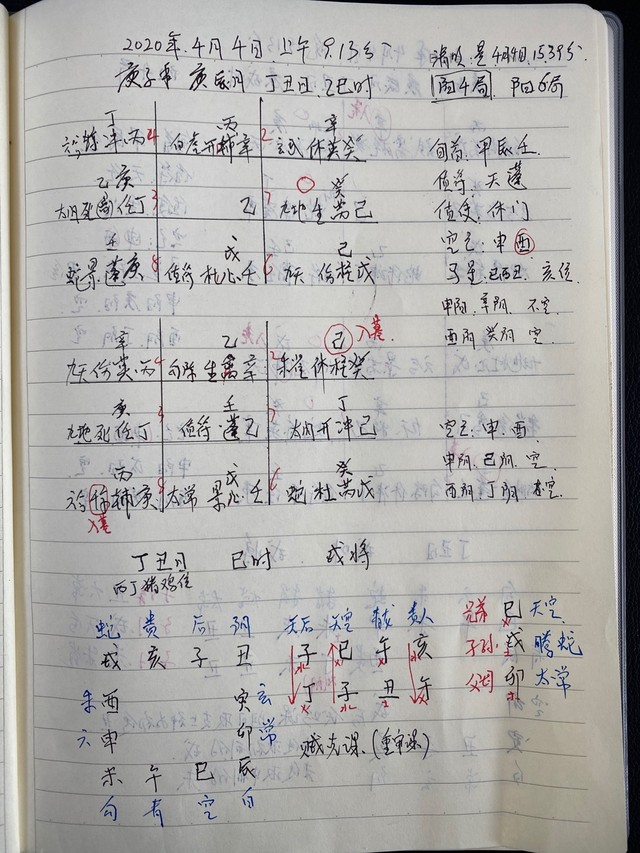 2020年.4月4日上午9.13分 清明是4月4日15.39分
庚子年 庚辰月 丁丑日.乙巳时 阴4局 阳6局
丁 丙 辛
丙4 白虎开辅辛2 玄武休英癸
旬首.甲辰壬
乙庚 癸
值符.天蓬
任丁 乙7 九地生芮己
值使.休门
壬 戊 己
空亡:申酉
蛇景蓬庚8 值符杜心壬6 九天伤柱戊
亥位
申阴.辛阴.不空
酉阴 癸阴 空
辛 乙 己 入墓
九天伤英丙4 勾陈生禽辛2 朱雀休柱癸
庚 壬 丁
九地死任丁 值符蓬乙7 开冲己
空亡:申酉
丙 戊 癸
申阴.己阴.空
辅庚8 太常景心壬6 蛇杜芮戊
酉阴.丁阴
入墓
丁丑日 巳时 戌将
丙丁猪鸡位
蛇 贵 后 阴 天后 天空 贵人 兄弟 巳 天空
戌 亥 子 丑 子 巳 午 亥 子孙 戌 腾蛇
酉 寅 玄 丁 子 丑 午 父母 卯 太常
六申 卯 常 贼克课.(重审课)
未 午 巳 辰
勾 青 空 白